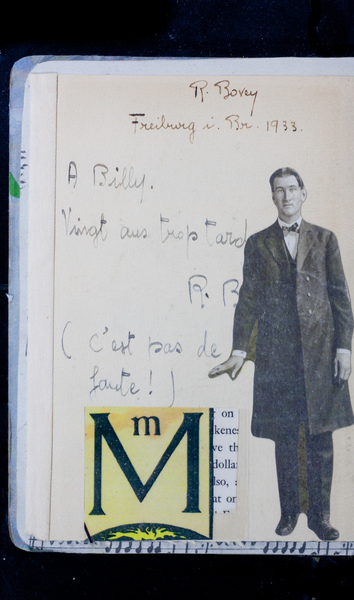 R. Bovey
Freiburg i. Br. 1933.
A Billy.
Vingt ans trop tard
R. B
( C'est pas de
faute ! )
m
M
t on
kenes
ve th
dolla
lso, a
at on